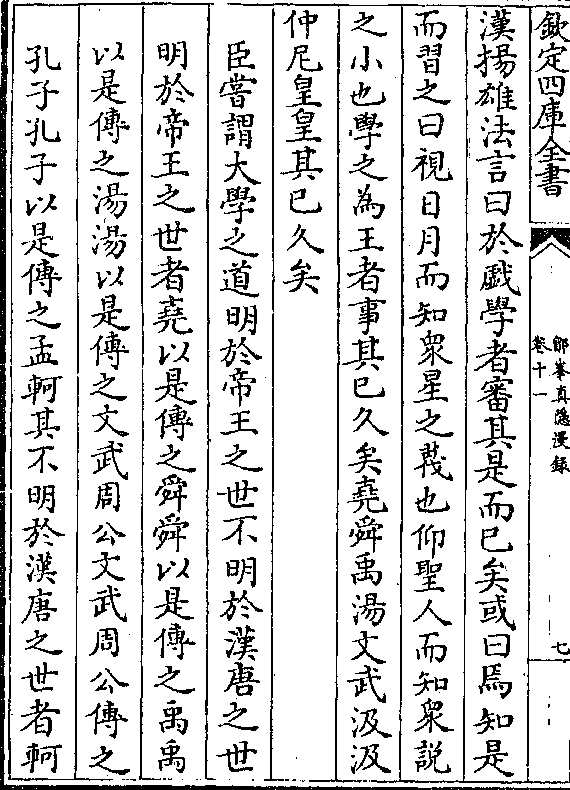 欽定四庫全書
鄮峯真隱漫録
卷十一
七
漢揚雄法言曰於戲學者審其是而已矣或曰焉知是
而習之曰視日月而知衆星之蔑也仰聖人而知衆說
之小也學之為王者事其已久矣堯舜禹湯文武汲汲
仲尼皇皇其已久矣
臣嘗謂大學之道明於帝王之世不明於漢唐之世
明於帝王之世者堯以是傳之舜舜以是傳之禹禹
以是傳之湯湯以是傳之文武周公文武周公傳之
孔子孔子以是傳之孟軻其不明於漢唐之世者軻